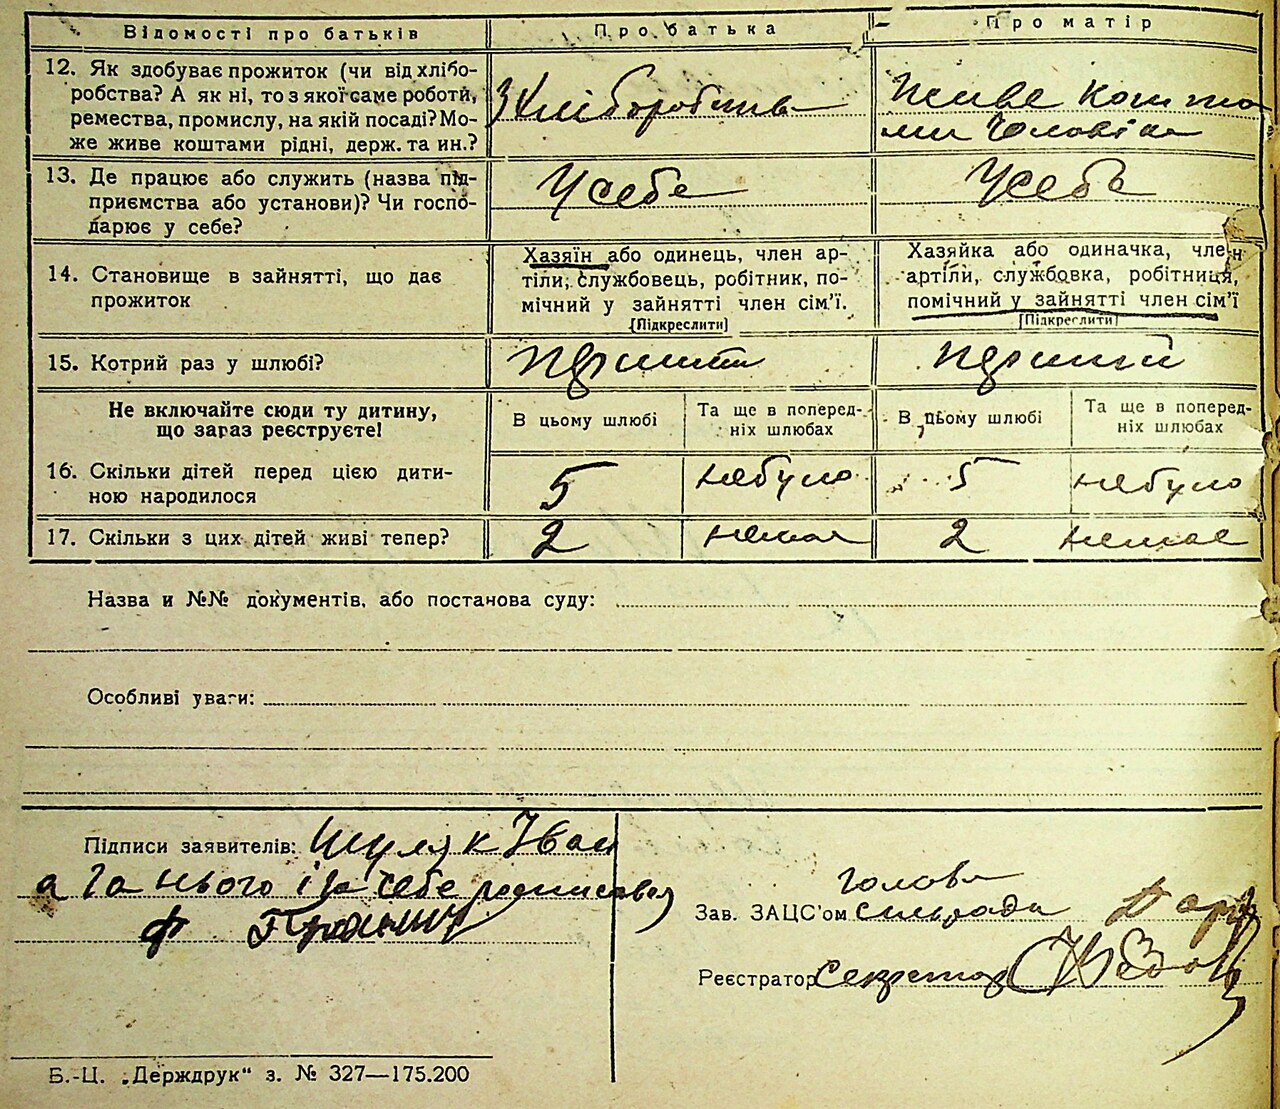 Відомості про батьків
Про батька
Про матір
12. Як здобуває прожиток (чи від хлібо-
робства? А як ні, то з якої саме роботи,
ремества, промислу, на якій посаді? Мо-
же живе коштами рідні, держ. та ин.?
З хліборобства
Живе кошта
ми чоловіка
13. Де працює або служить (назва під-
приємства або установи)? Чи госпо-
дарює у себе?
У себе
У себе
14. Становище в зайнятті, що дає
прожиток
Хазяїн або одинець, член ар-
тіли, службовець, робітник, по-
мічний у зайнятті член сім'ї.
[Підкреслити]
Хазяйка або одиначка, член
артіли, службовка, робітниця,
помічний у зайнятті член сім'ї
[Підкреслити]
15. Котрий раз у шлюбі?
перший
перший
Не включайте сюди ту дитину,
що зараз реєструєте!
В цьому шлюбі
Та ще в поперед-
ніх шлюбах
В цьому шлюбі
Та ще в поперед-
ніх шлюбах
16. Скільки дітей перед цією дити-
ною народилося
5
небуло
5
небуло
17. Скільки з цих дітей живі тепер?
2
немає
2
немає
Назва и №№ документів, або постанова суду:
Особливі уваги:
Підписи заявителів: Шуляк Іван
а за нього і за себе
Ф
голова
Зав. ЗАЦС'ом сильради
Реєстратор секретар
Б.-Ц. „Держдрук" з. № 327—175.200